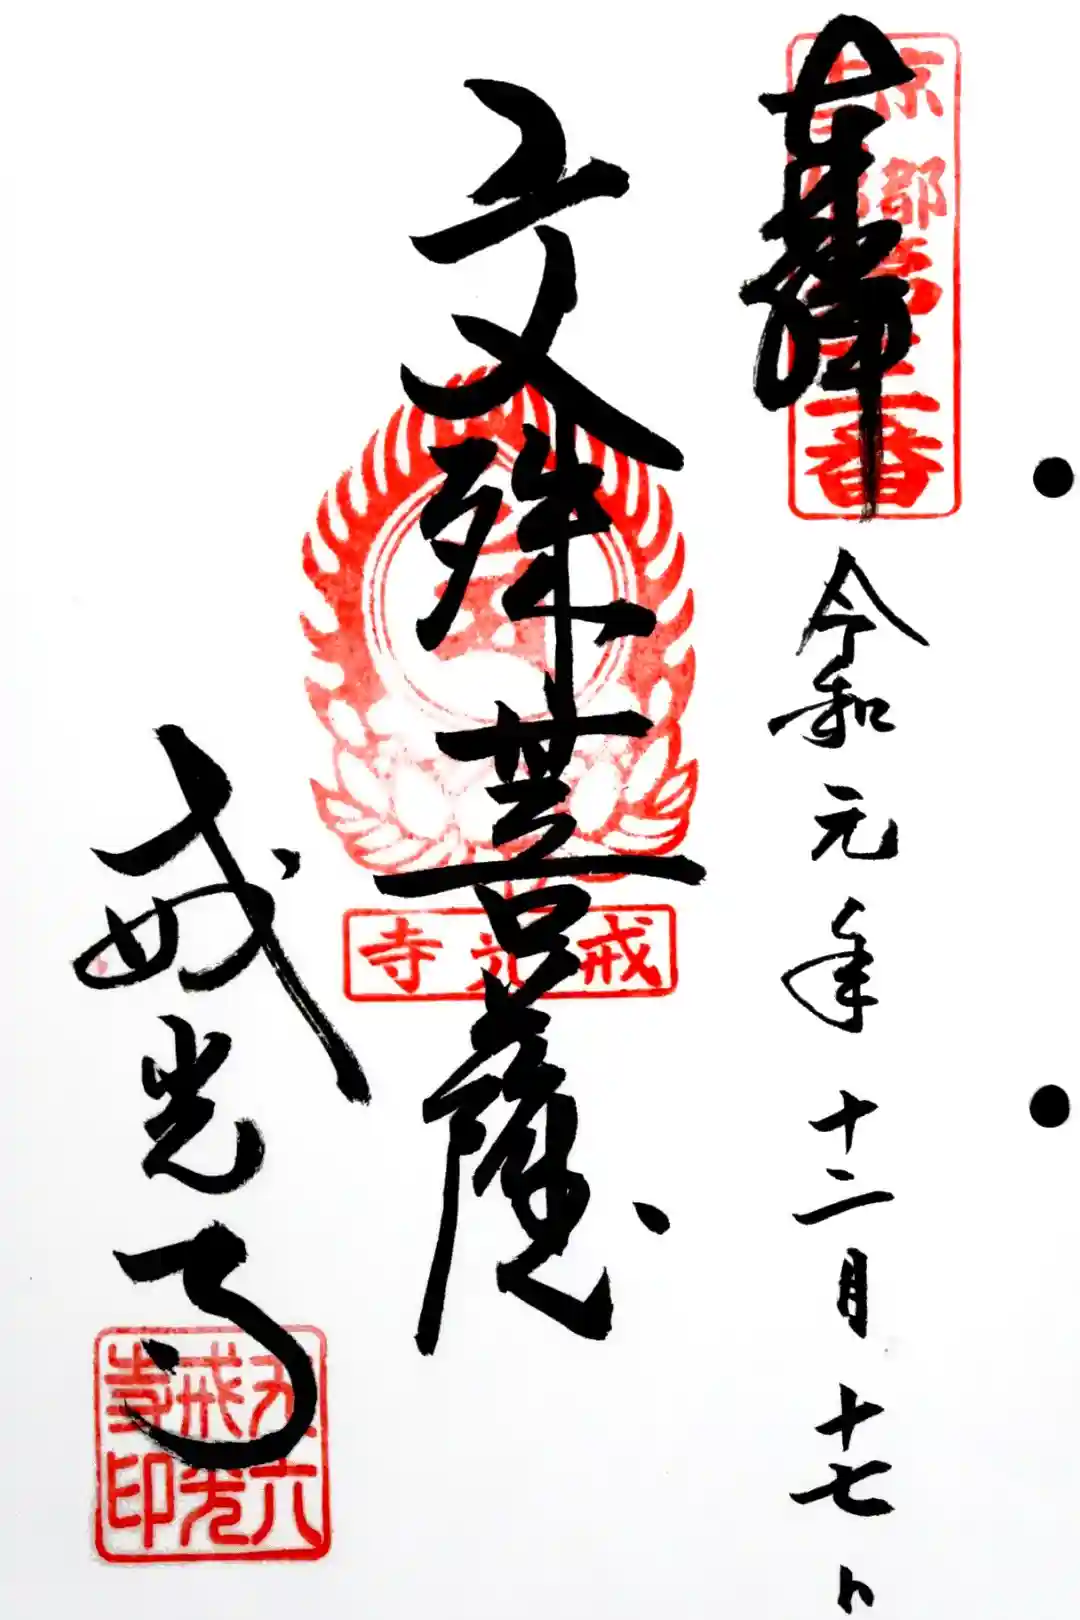 奉拝
京都
番
令和元年十二月十七日
文殊菩薩
戒光寺
戒光寺
丈六戒光寺印